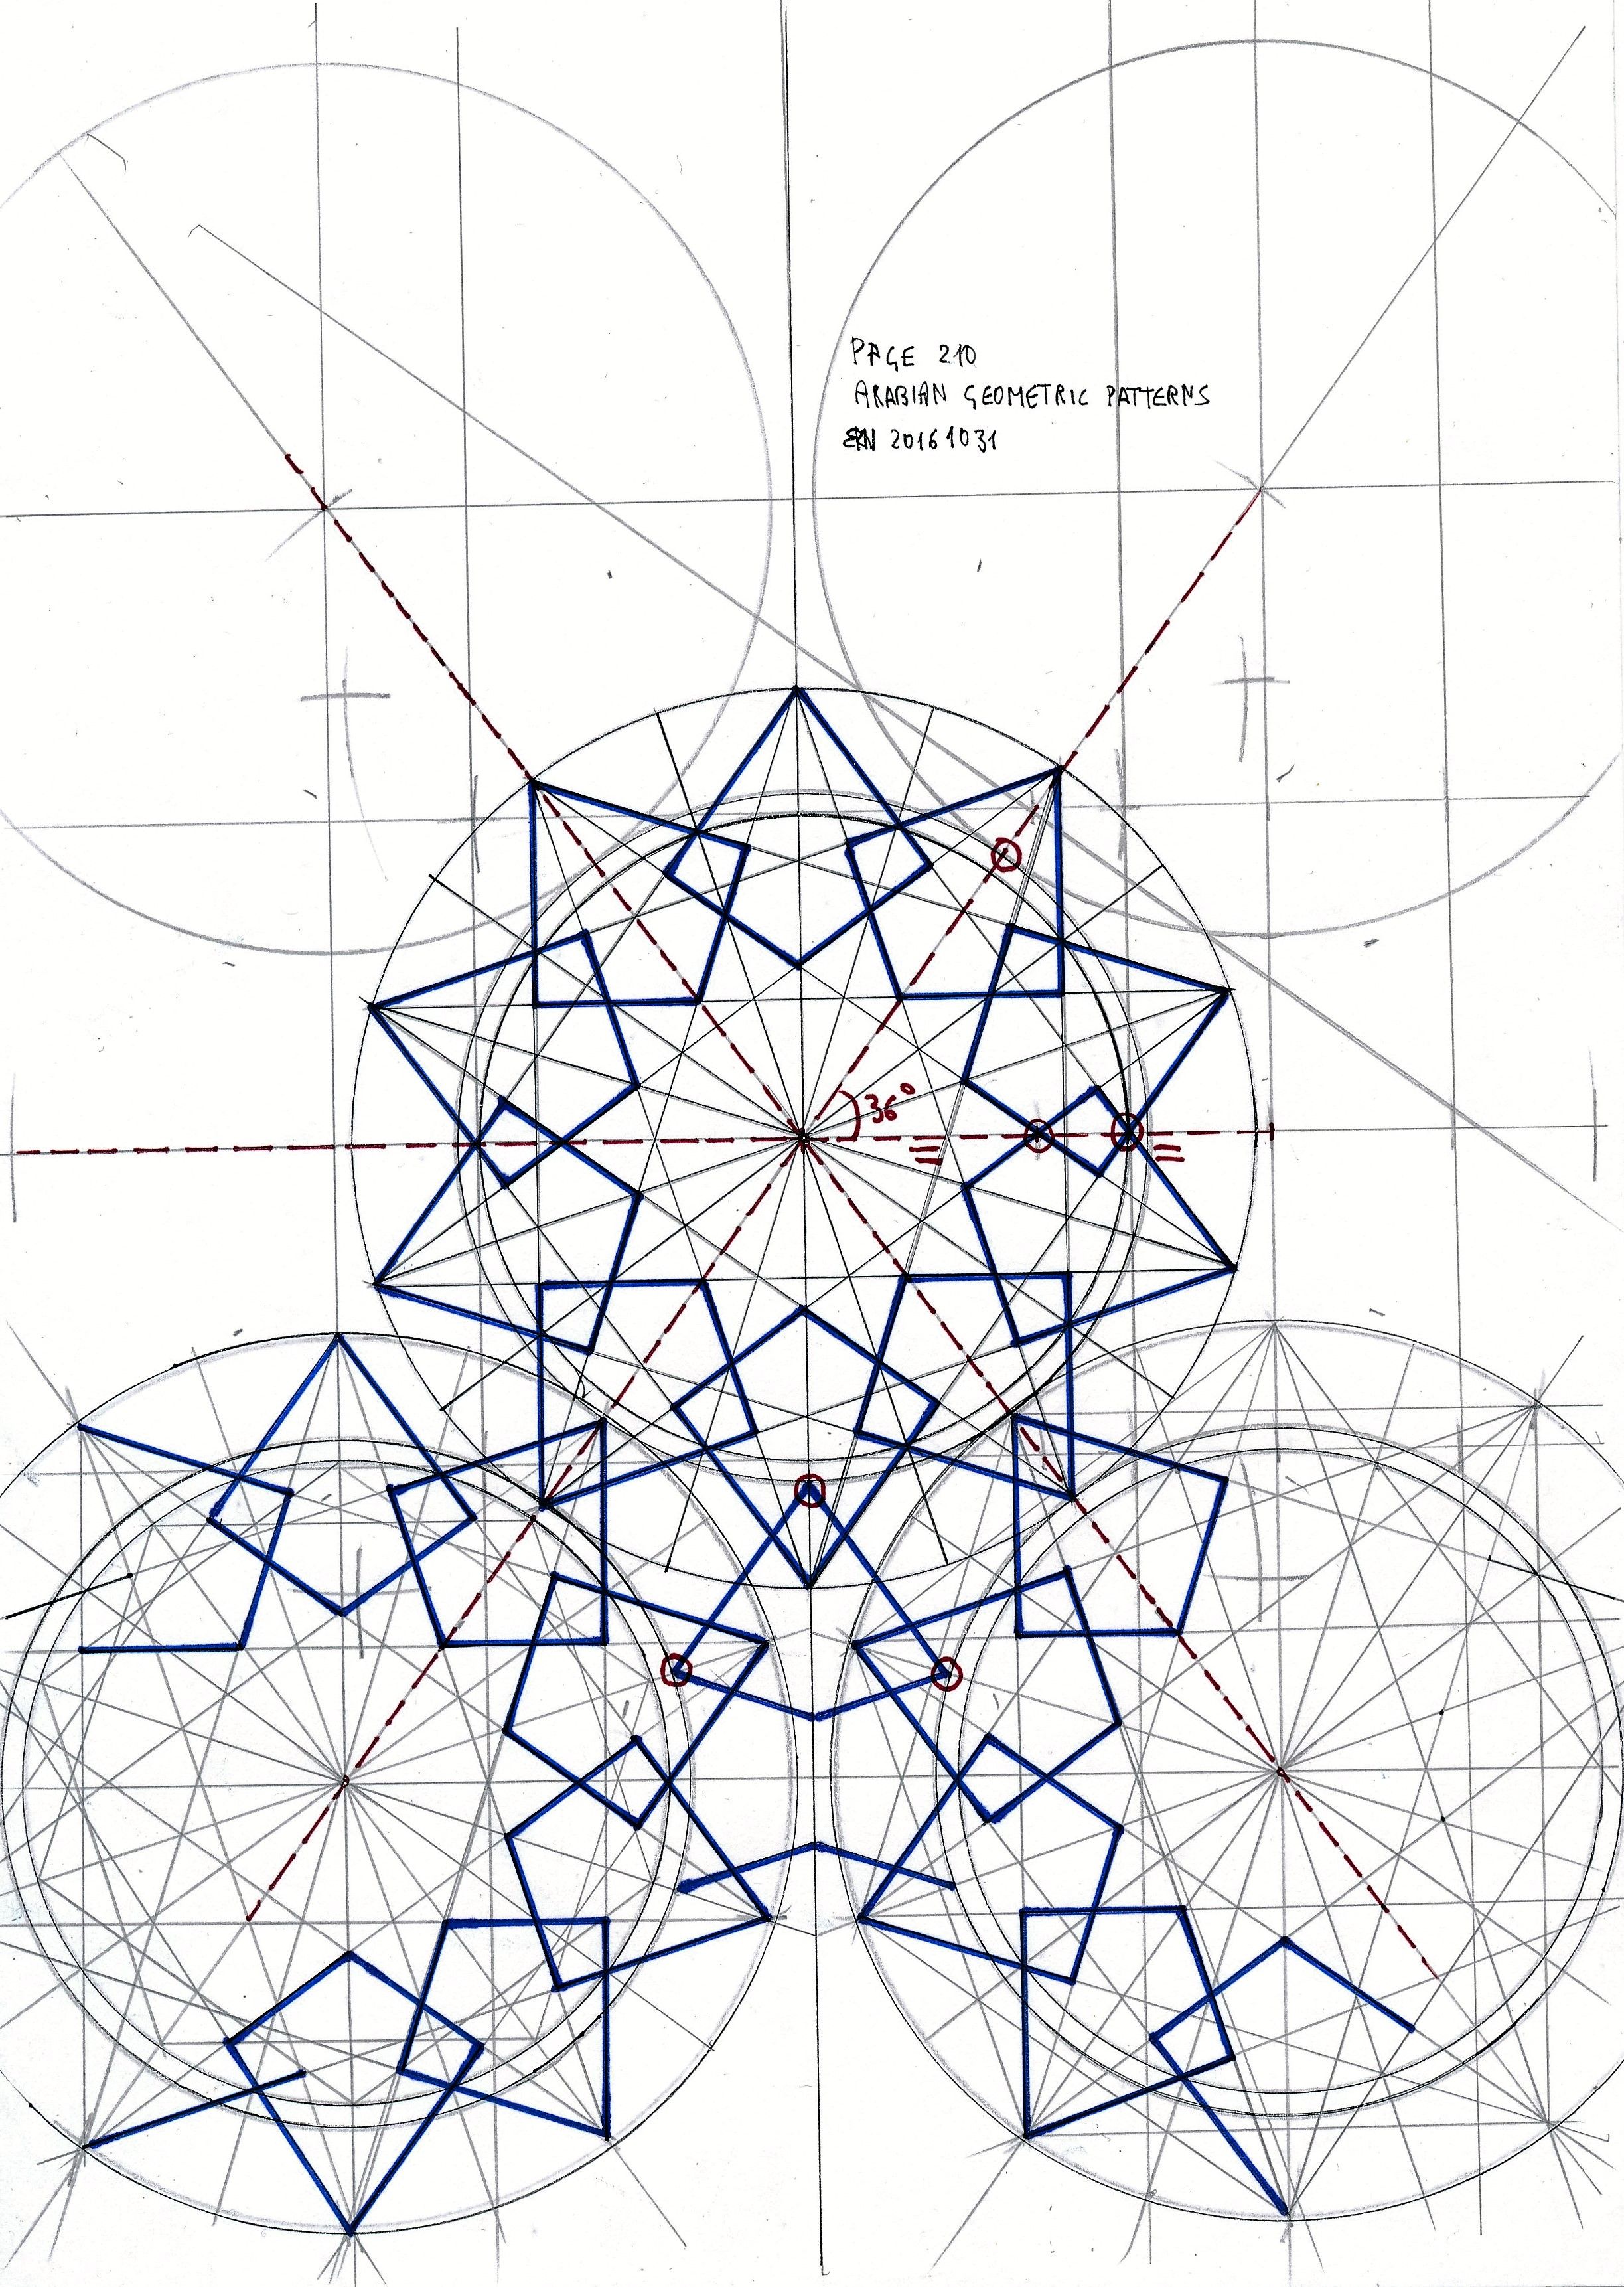 PAGE 210
ARABIAN GEOMETRIC PATTERNS
20161031
36°